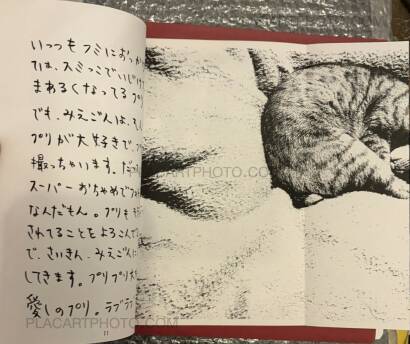 いっつもフミにおっか
ては、スミっこでいじけ
まあるくなってるプリ
でも、みえごんは、そ
プリが大好きで、プ
撮っちゃいます。だっ
スーパーおちゃめでプ
なんだもん。プリも
されてることをよろこん
で、さいきん、みえごんに
してきます。プリプリ
愛しのプリ。ラブラ
11
PLACARTPHOTO.COM
PLACARTPHOTO.COM
PLACARTPHOTO.COM